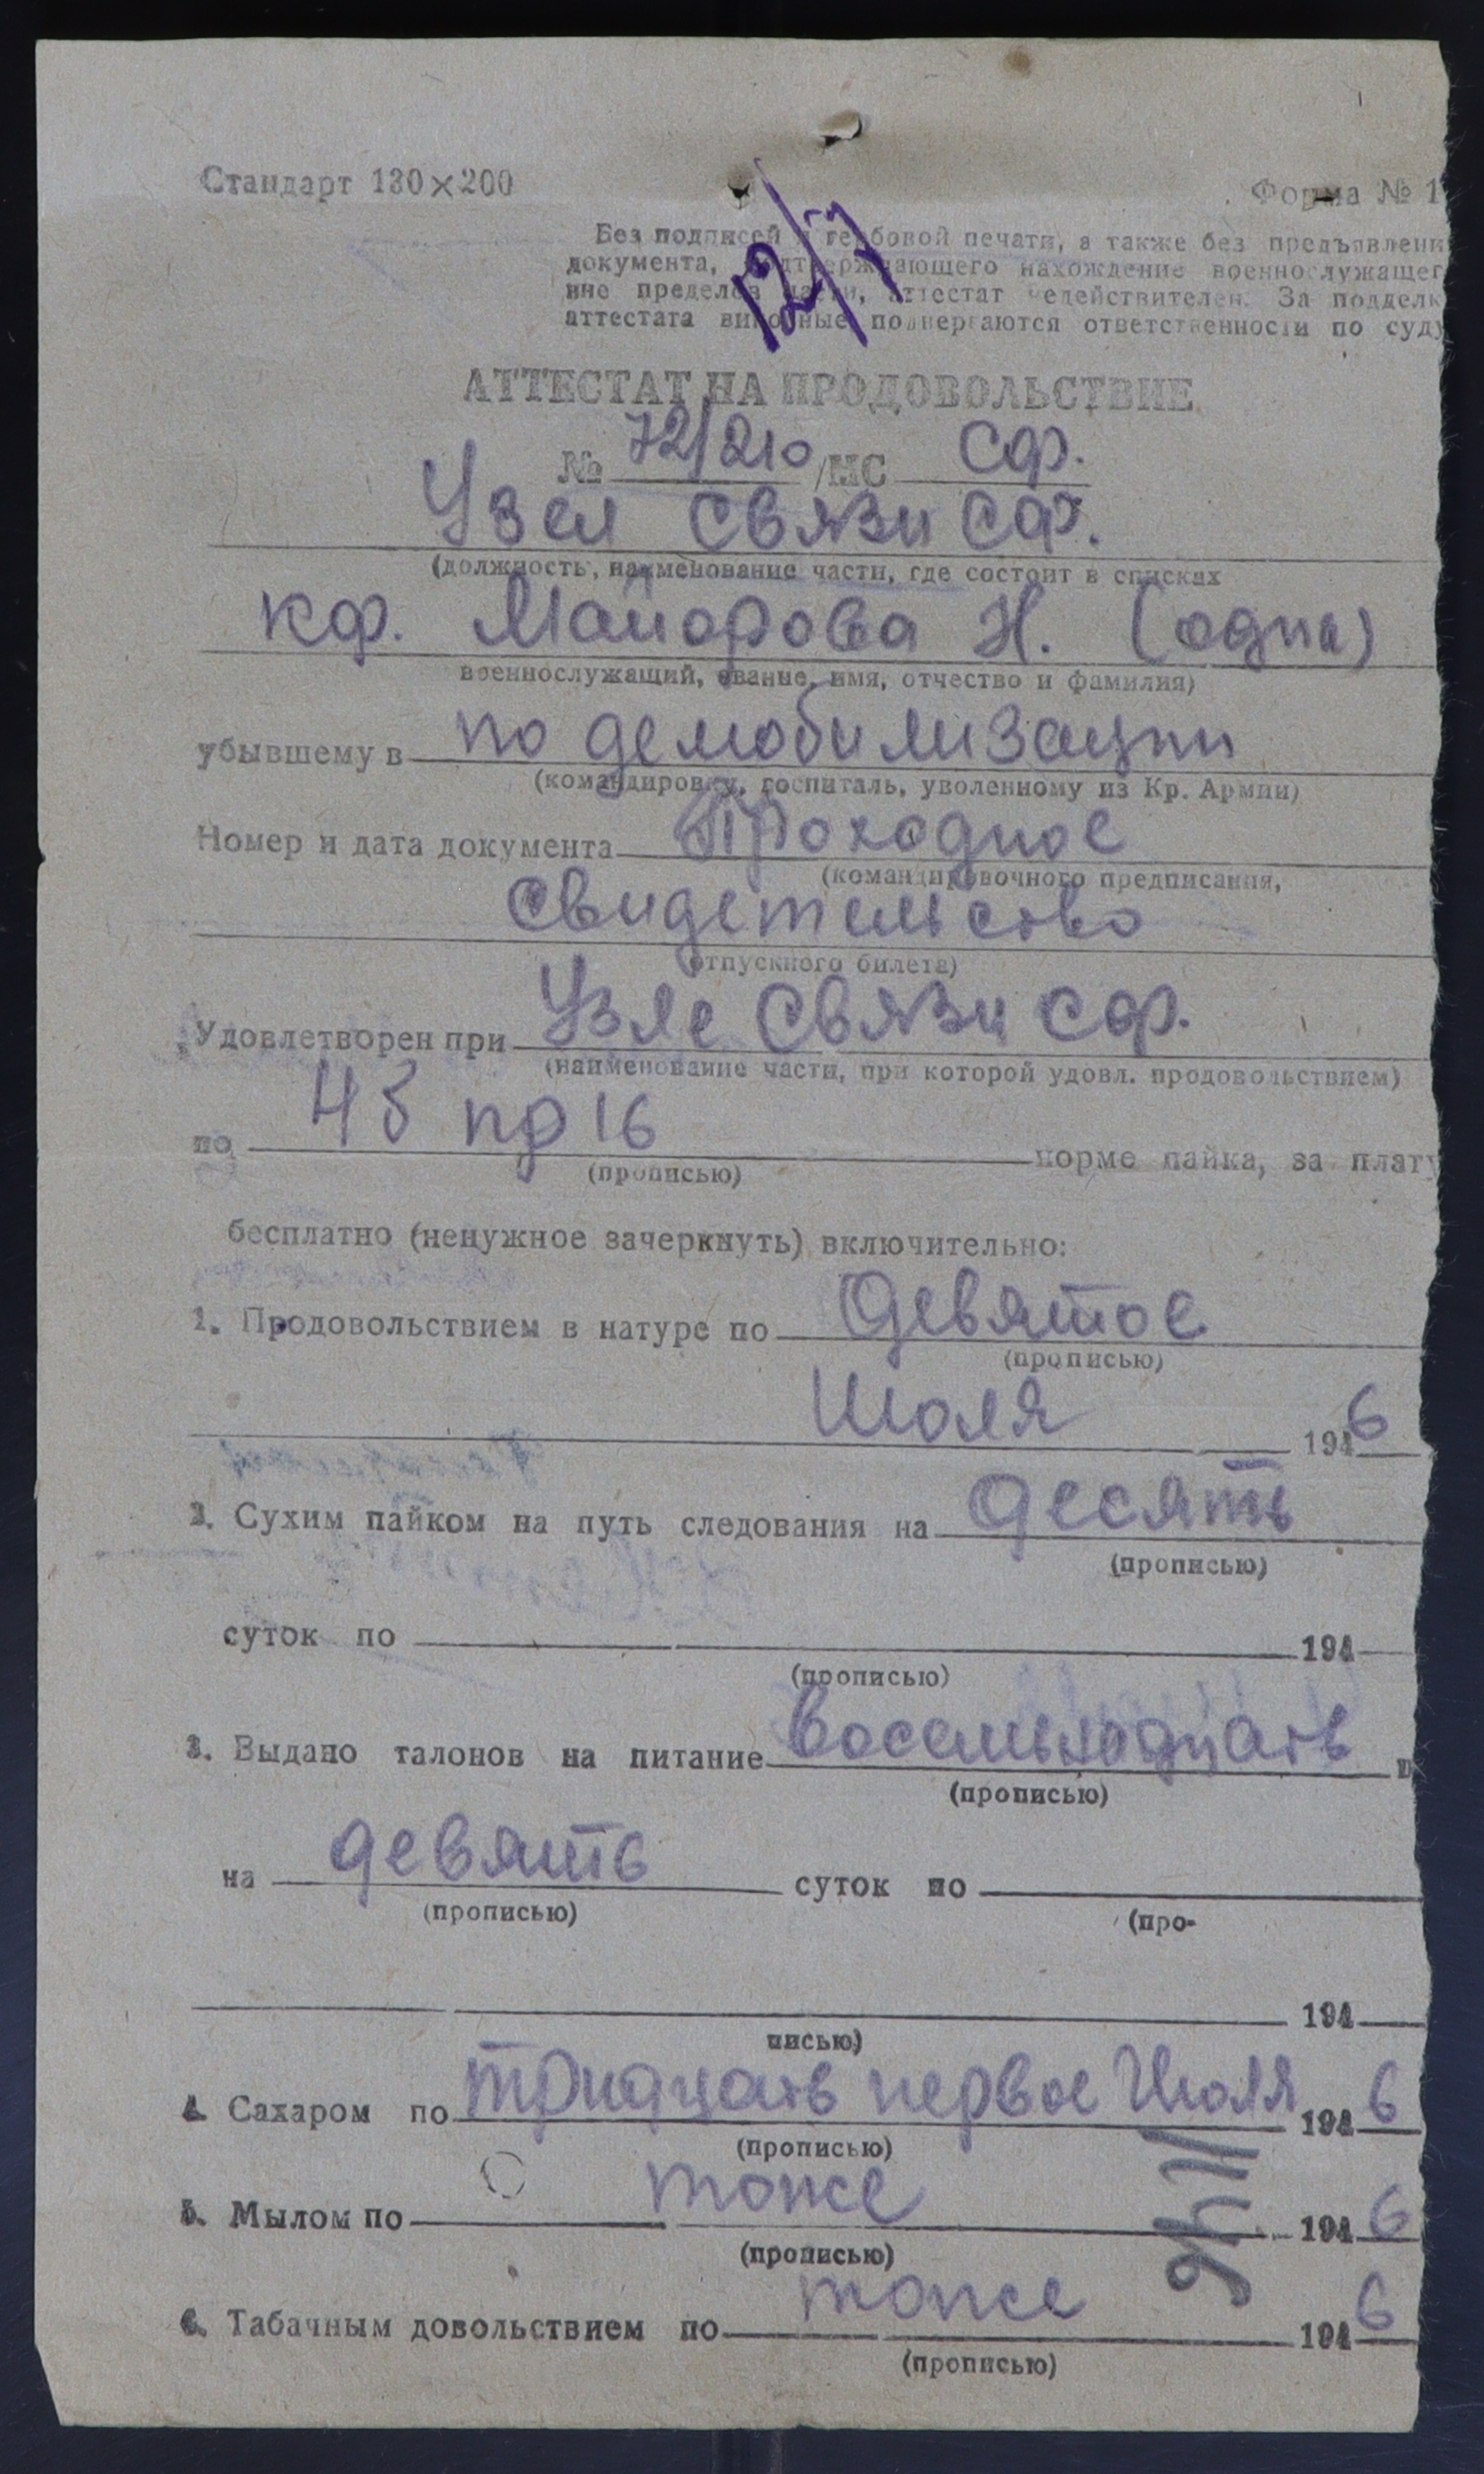 Стандарт 130×200
Форма № 1
12/7
Без подписей и гербовой печати, а также без предъявлени
документа, подтверждающего нахождение военнослужащег
вне пределов части, аттестат недействителен. За подделк
аттестата виновные подвергаются ответственности по суду
АТТЕСТАТ НА ПРОДОВОЛЬСТВИЕ
№ 72/210 /НС Сф.
Узел Связи Сф.
(должность, наименование части, где состоит в списках
кф. Майорова Н. (одна)
военнослужащий, звание, имя, отчество и фамилия)
убывшему в по демобилизации
(командировку, госпиталь, уволенному из Кр. Армии)
Номер и дата документа Проходное
(командировочного предписания,
Свидетельство
отпускного билета)
Удовлетворен при Узле Связи Сф.
(наименование части, при которой удовл. продовольствием)
по пр 16 норме пайка, за плату
(прописью)
бесплатно (ненужное зачеркнуть) включительно:
1. Продовольствием в натуре по Девятое
(прописью)
Июля 1946
2. Сухим пайком на путь следования на Десять
(прописью)
суток по 194
(прописью)
3. Выдано талонов на питание Восемьнадцать ш
(прописью)
на девять суток по
(прописью) (про-
194
писью)
4. Сахаром по тридцать первое Июля 1946
(прописью)
5. Мылом по тоже 1946
(прописью)
6. Табачным довольствием по тоже 1946
(прописью)